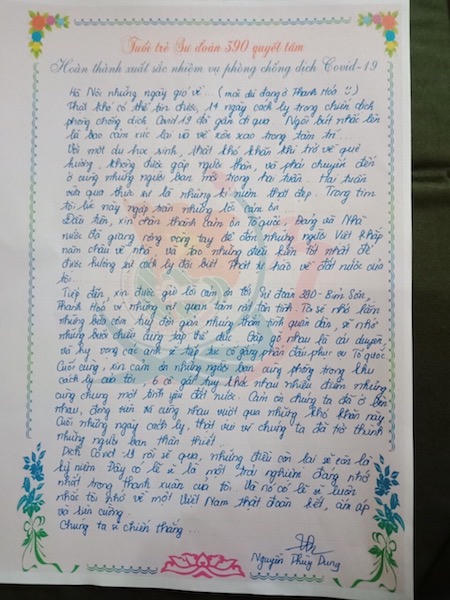 Tuổi trẻ Sư đoàn 390 quyết tâm
Hoàn thành xuất sắc nhiệm vụ phòng chống dịch Covid-19
Hà Nội những ngày gió về... (mặc dù đang ở Thanh Hoá :))
Thật khó có thể tin được, 14 ngày cách ly trong chiến dịch
phòng chống dịch Covid 19 đã gần đi qua. Ngồi bút nhấc lên
là bao cảm xúc lại ùa về xốn xao trong tâm trí...
Với một du học sinh, thật khó khăn khi trở về quê
hương, không được gặp người thân, và phải chuyển đến
ở cùng những người bạn mới trong hai tuần. Hai tuần
vừa qua thực sự là những kỉ niệm thật đẹp. Trong tim
tôi lúc này ngập tràn những lời cảm ơn.
Đầu tiên, xin chân thành cảm ơn Tổ quốc, Đảng và Nhà
nước đã giang rộng vòng tay để đón những người Việt khắp
năm châu về nhà, và tạo những điều kiện tốt nhất để
được hưởng sự cách ly đặc biệt. Thật tự hào về đất nước của
tôi.
Tiếp đến, xin được gửi lời cảm ơn tới Sư đoàn 390 - Bỉm Sơn,
Thanh Hoá vì những sự quan tâm rất tận tình. Tôi sẽ nhớ lắm
những bữa cơm tuy đơn giản nhưng thắm tình quân dân, sẽ nhớ
những buổi chiều cùng tập thể dục. Gặp gỡ nhau là cái duyên,
và hy vọng các anh sẽ tiếp tục cố gắng phấn đấu phục vụ Tổ quốc
Cuối cùng, xin cảm ơn những người bạn cùng phòng trong khu
cách ly của tôi. 6 cô gái tuy khác nhau nhiều điểm nhưng
cùng chung một tình yêu đất nước. Cảm ơn chúng ta đã ở bên
nhau, động viên và cùng nhau vượt qua những khó khăn này.
Cuối những ngày cách ly, thật vui vì chúng ta đã trở thành
những người bạn thân thiết...
Dịch Covid 19 rồi sẽ qua, những điều còn lại sẽ còn là
kỷ niệm. Đây có lẽ sẽ là một trải nghiệm đáng nhớ
nhất trong thanh xuân của tôi. Và nó có lẽ sẽ luôn
nhắc tôi nhớ về một Việt Nam thật đoàn kết, ấm áp
và kiên cường.
Chúng ta sẽ chiến thắng...
Nguyễn Thùy Dung